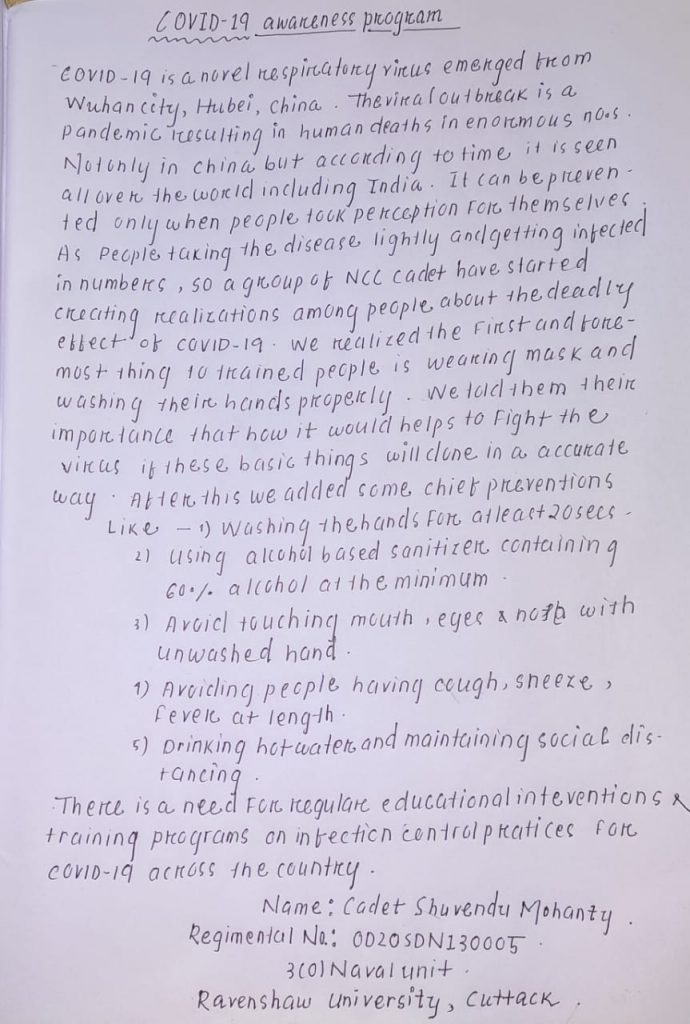 COVID-19 awareness program
COVID-19 is a novel respiratory virus emerged from
Wuhan city, Hubei, China. The viral outbreak is a
pandemic resulting in human deaths in enormous no.s.
Not only in china but according to time it is seen
all over the world including India. It can be preven-
ted only when people took perception For themselves.
As People taking the disease lightly and getting infected
in numbers, so a group of NCC cadet have started
creating realizations among people about the deadly
effect of COVID-19. We realized the First and fore-
most thing to trained people is wearing mask and
washing their hands properly. We told them their
importance that how it would helps to Fight the
virus if these basic things will done in a accurate
way. After this we added some chief preventions
Like - 1) Washing the hands For atleast 20 secs.
2) Using alcohol based sanitizer containing
60% alcohol at the minimum.
3) Avoid touching mouth, eyes & nose with
unwashed hand.
4) Avoiding people having cough, sneeze,
fever at length.
5) Drinking hot water and maintaining social dis-
tancing.
There is a need For regular educational inteventions &
training programs on infection control pratices For
COVID-19 across the country.
Name: Cadet Shuvendu Mohanty.
Regimental No.: OD20SDN130005.
3(O) Naval unit.
Ravenshaw University, Cuttack.